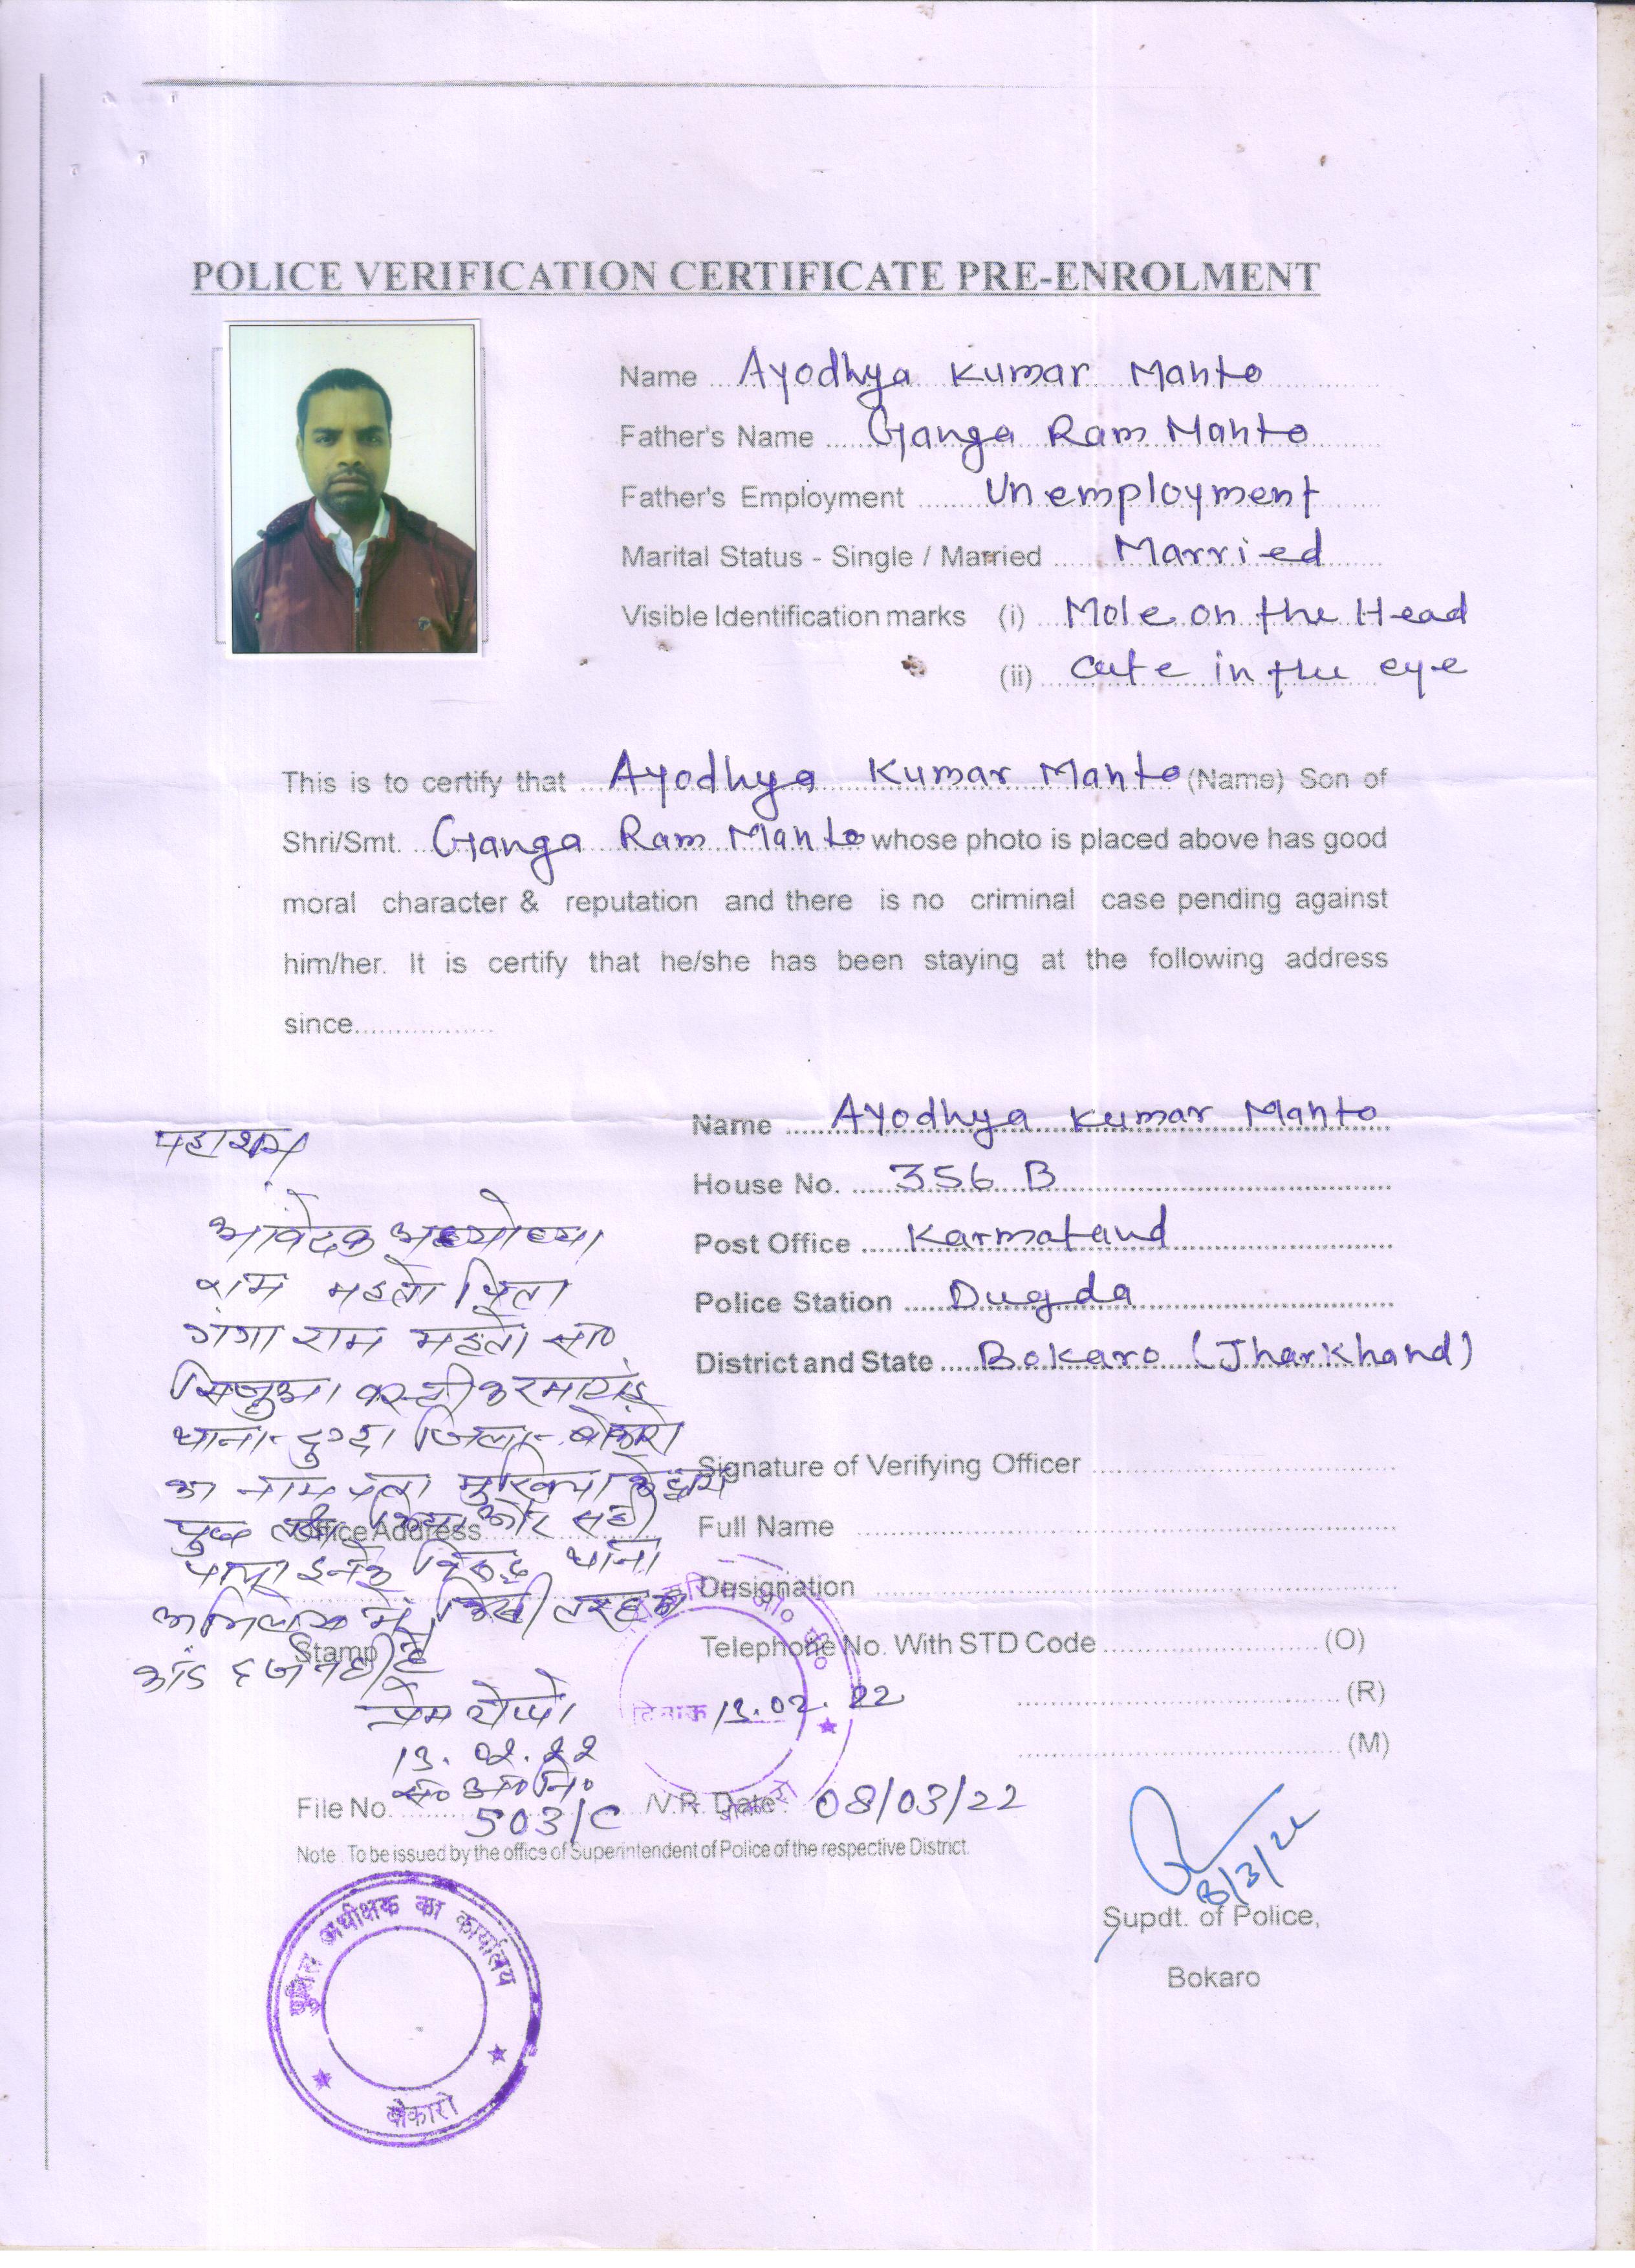 POLICE VERIFICATION CERTIFICATE PRE-ENROLMENT
Name Ayodhya Kumar Mahto
Father's Name Ganga Ram Mahto
Father's Employment Unemployment
Marital Status - Single / Married Married
Visible Identification marks (i) Mole on the Head
(ii) cute in the eye
This is to certify that Ayodhya Kumar Mahto (Name) Son of
Shri/Smt. Ganga Ram Mahto whose photo is placed above has good
moral character & reputation and there is no criminal case pending against
him/her. It is certify that he/she has been staying at the following address
since
Name Ayodhya Kumar Mahto
House No. 356 B
Post Office Karmatand
Police Station Dugda
District and State Bokaro (Jharkhand)
महाशय
आवेदक
राम महतो पिता
गंगा राम महतो सा०
थाना- दुग्दा जिला- बोकारो
का नाम पता मुखिया के द्वारा
और सही
पाया इनके विरुद्ध थाना
अभिलेख में किसी तरह का
कांड दर्ज नहीं है
13.02.22
स० अ० नि०
Signature of Verifying Officer
Office Address
Full Name
Designation
Stamp
Telephone No. With STD Code (O)
(R)
(M)
दिनांक 13.02.22
File No. 503/C V.R. Date 08/03/22
Note : To be issued by the office of Superintendent of Police of the respective District.
8/3/22
Supdt. of Police,
Bokaro
पुलिस अधीक्षक का कार्यालय
बोकारो